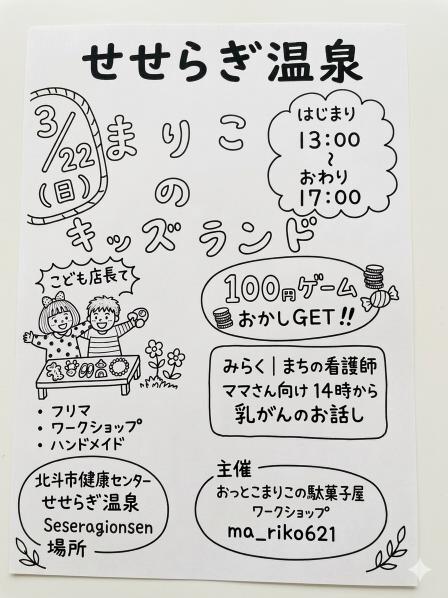 せせらぎ温泉
3/22
(日)
まりこ
の
キッズランド
はじまり
13:00
~
おわり
17:00
こども店長て
100円ゲーム
おかしGET!!
みらく|まちの看護師
ママさん向け14時から
乳がんのお話し
・フリマ
・ワークショップ
・ハンドメイド
北斗市健康センター
せせらぎ温泉
Seseragionsen
場所
主催
おっとこまりこの駄菓子屋
ワークショップ
ma_riko621